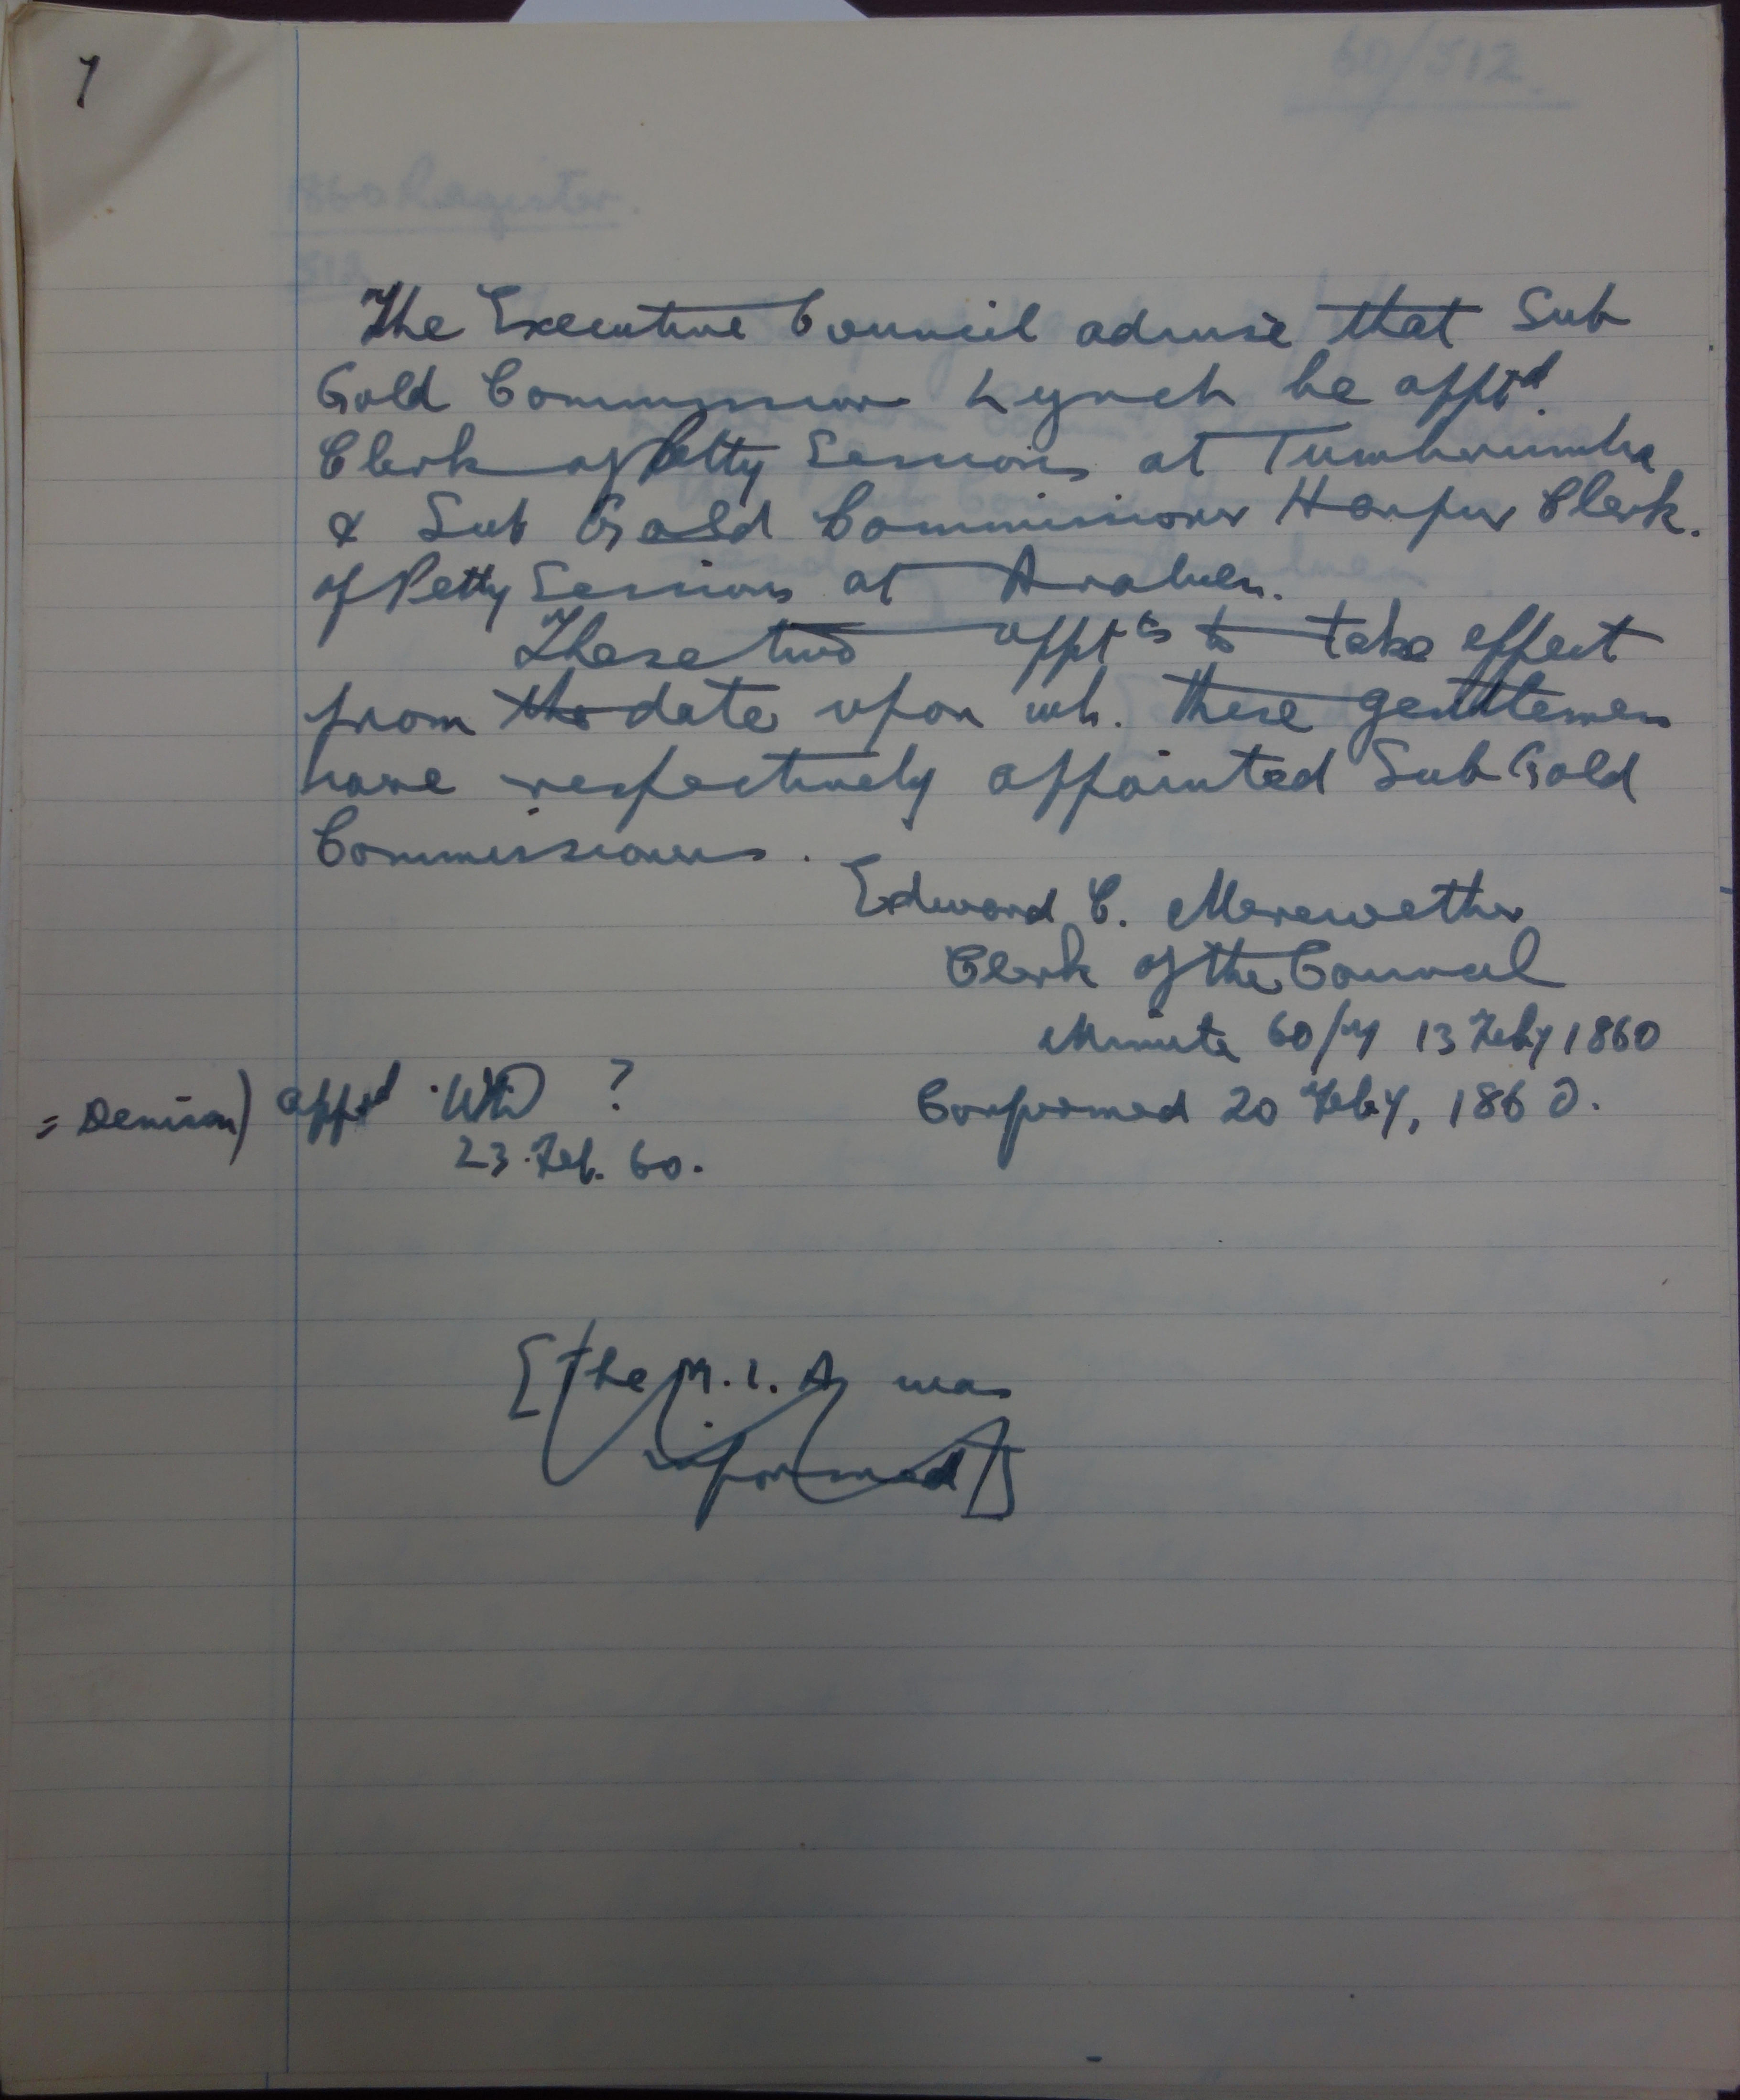 7
The Executive Council advise that Sub
Gold Commissioner Lynch be apptd.
Clerk of Petty Sessions at Tumbarumba
& Sub Gold Commissioner Harper Clerk.
of Petty Sessions at Araluen.
These two appts to take effect
from the date upon wh. these gentlemen
have respectively appointed Sub Gold
Commissioners.
Edward C. Merewether
Clerk of the Council
Minute 60/7 13 Feby 1860
= Denison) appd WD ? Confirmed 20 Feby, 1860.
23. Feb. 60.
[the M.L.A was
informed]